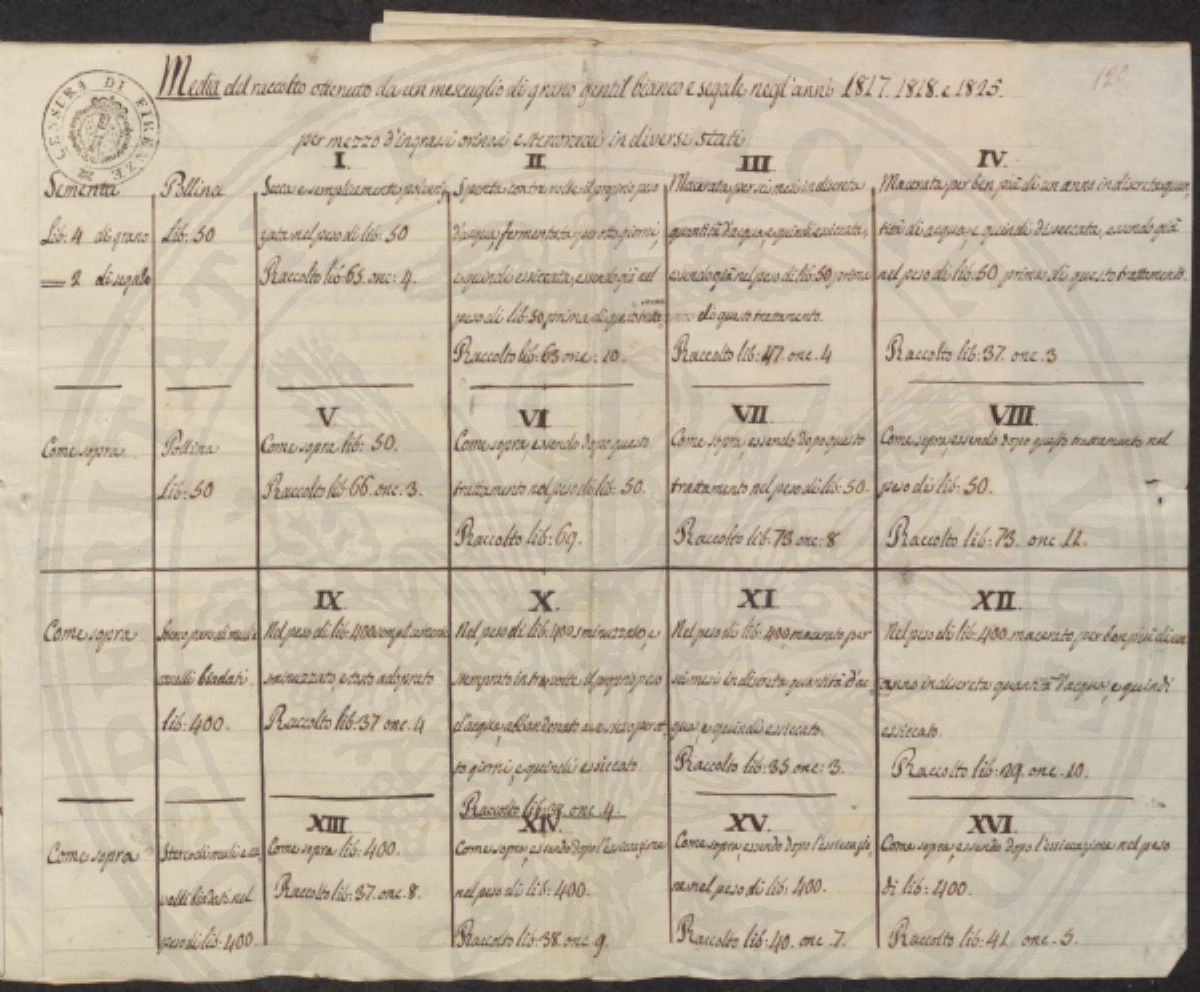 CENSURA DI FIRENZE
120
Media del raccolto ottenuto da un mescuglio di grano gentil bianco e segale negl'anni 1817. 1818. e 1825.
per mezzo d'ingrassi orinosi e stercoracei in diversi stati
Sementa
Lib: 4 di grano
— 2 di segale
Pollina
Lib: 50
I.
Secca e semplicemente polveriz,
zata nel peso di lib: 50
Raccolto lib: 65. onc: 4.
II
Spenta con tre volte il proprio peso
d'acqua, fermentata per otto giorni,
e quindi essiccata, essendo già nel
peso di lib: 50 prima di questo tratta
Raccolto lib: 63 onc: 10.
III
Macerata per sei mesi in discreta
quantità d'acqua, e quindi essiccata,
essendo già nel peso di lib: 50 prima
di questo trattamento.
Raccolto lib: 47. onc. 4
IV.
Macerata per ben più di un anno in discreta quan,
tità di acqua, e quindi disseccata, essendo già
nel peso di lib: 50 prima di questo trattamento.
Raccolto lib: 37. onc. 3
Come sopra
Pollina
Lib: 50
V
Come sopra lib: 50.
Raccolto lib: 66. onc. 3.
VI
Come sopra, essendo dopo questo
trattamento nel peso di lib: 50.
Raccolto lib: 69.
VII
Come sopra, essendo dopo questo
trattamento nel peso di lib: 50.
Raccolto lib: 73 onc: 8
VIII.
Come sopra, essendo dopo questo trattamento nel
peso di lib: 50.
Raccolto lib: 73. onc. 11.
Come sopra
Sterco puro di muli e
cavalli biadati
lib: 400.
IX
Nel peso di lib: 400 semplicemente
sminuzzato, e tosto adoprato
Raccolto lib: 37 onc. 4
X.
Nel peso di lib: 400 sminuzzato, e
stemprato in tre volte il proprio peso
d'acqua, abbandonato a se stesso per ot,
to giorni, e quindi essiccato.
Raccolto lib: 38. onc 4.
XI
Nel peso di lib: 400, macerato per
sei mesi in discreta quantità d'ac
qua e quindi essiccato.
Raccolto lib: 35 onc: 3.
XII
Nel peso di lib: 400. macerato per ben più di un
anno in discreta quantità d'acqua, e quindi
essiccato.
Raccolto lib: 29. onc. 10.
Come sopra
Sterco di muli e ca,
valli biadati nel
peso di lib: 400
XIII
Come sopra lib: 400.
Raccolto lib: 37. onc. 8.
XIV.
Come sopra, essendo dopo l'essiccazione
nel peso di lib: 400.
Raccolto lib: 38. onc. 9.
XV.
Come sopra, essendo dopo l'essiccazio,
ne nel peso di lib: 400.
Raccolto lib: 40. onc. 7.
XVI
Come sopra, essendo dopo l'essiccazione nel peso
di lib: 400.
Raccolto lib: 41. onc. 5.